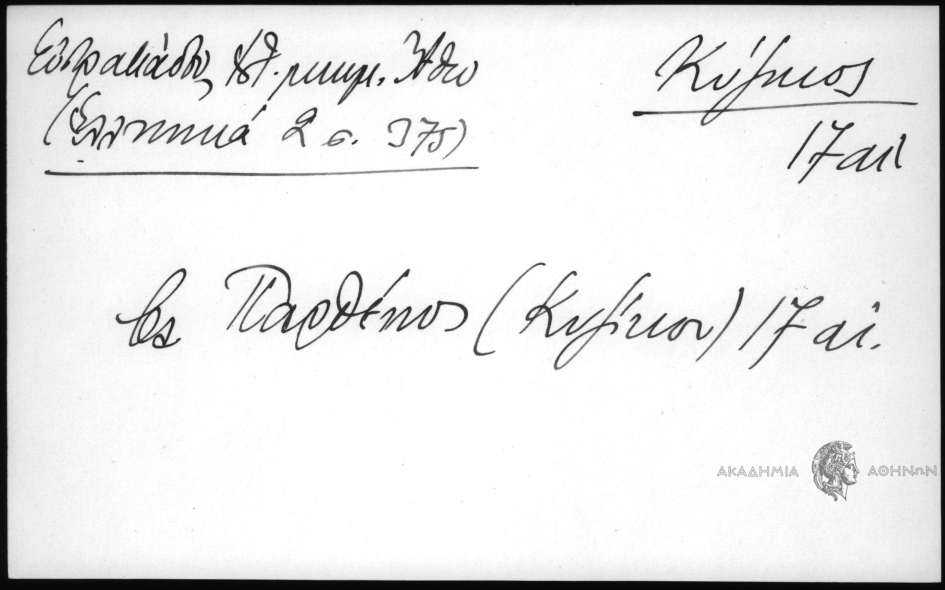 Εὐστρατιάδου, Ἁγ. μνημ. Ἄθω
(Ἑλληνικά 2 σ. 375)
Κύζικος
17 αἰ
Παρθένιος (Κυζίκου) 17 αἰ.
ΑΚΑΔΗΜΙΑ ΑΘΗΝΩΝ